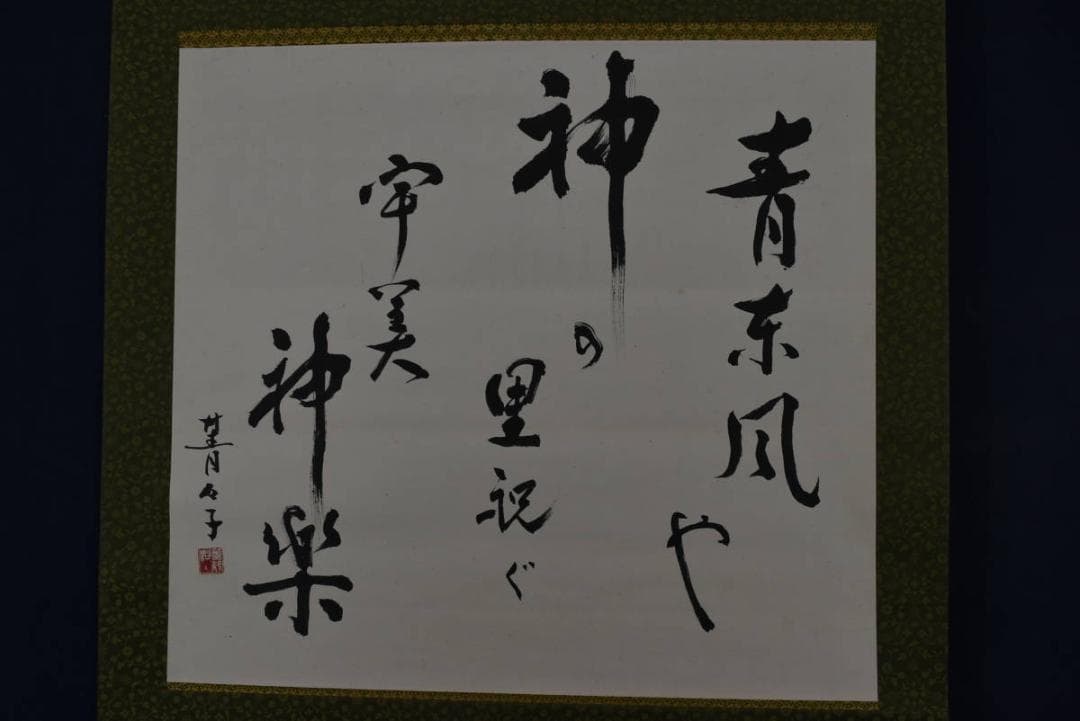 青東風や
神の里祝ぐ
宇美
神楽
菁々子